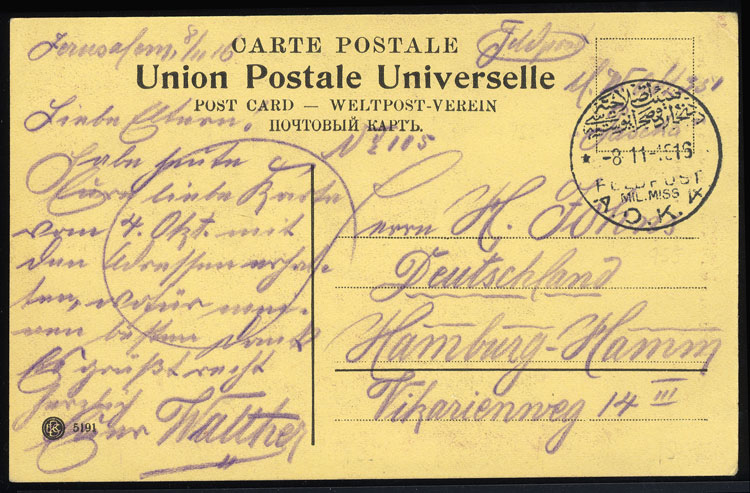 Jerusalem, 8/11 16
Feldpost
CARTE POSTALE
Union Postale Universelle
POST CARD — WELTPOST-VEREIN
ПОЧТОВЫЙ КАРТЬ.
Liebe Eltern.
Habe heute
Eure liebe Karte
vom 4. Okt. mit
den Adressen erhal-
ten, wofür mei-
nen besten Dank
Es grüßt recht
Herzlich
Euer Walther
5191
-8.11-1916
FELDPOST
MIL.MISS
A.O.K. IV
Herrn H.
Deutschland
Hamburg-Hamm
Vikarienweg 14 III